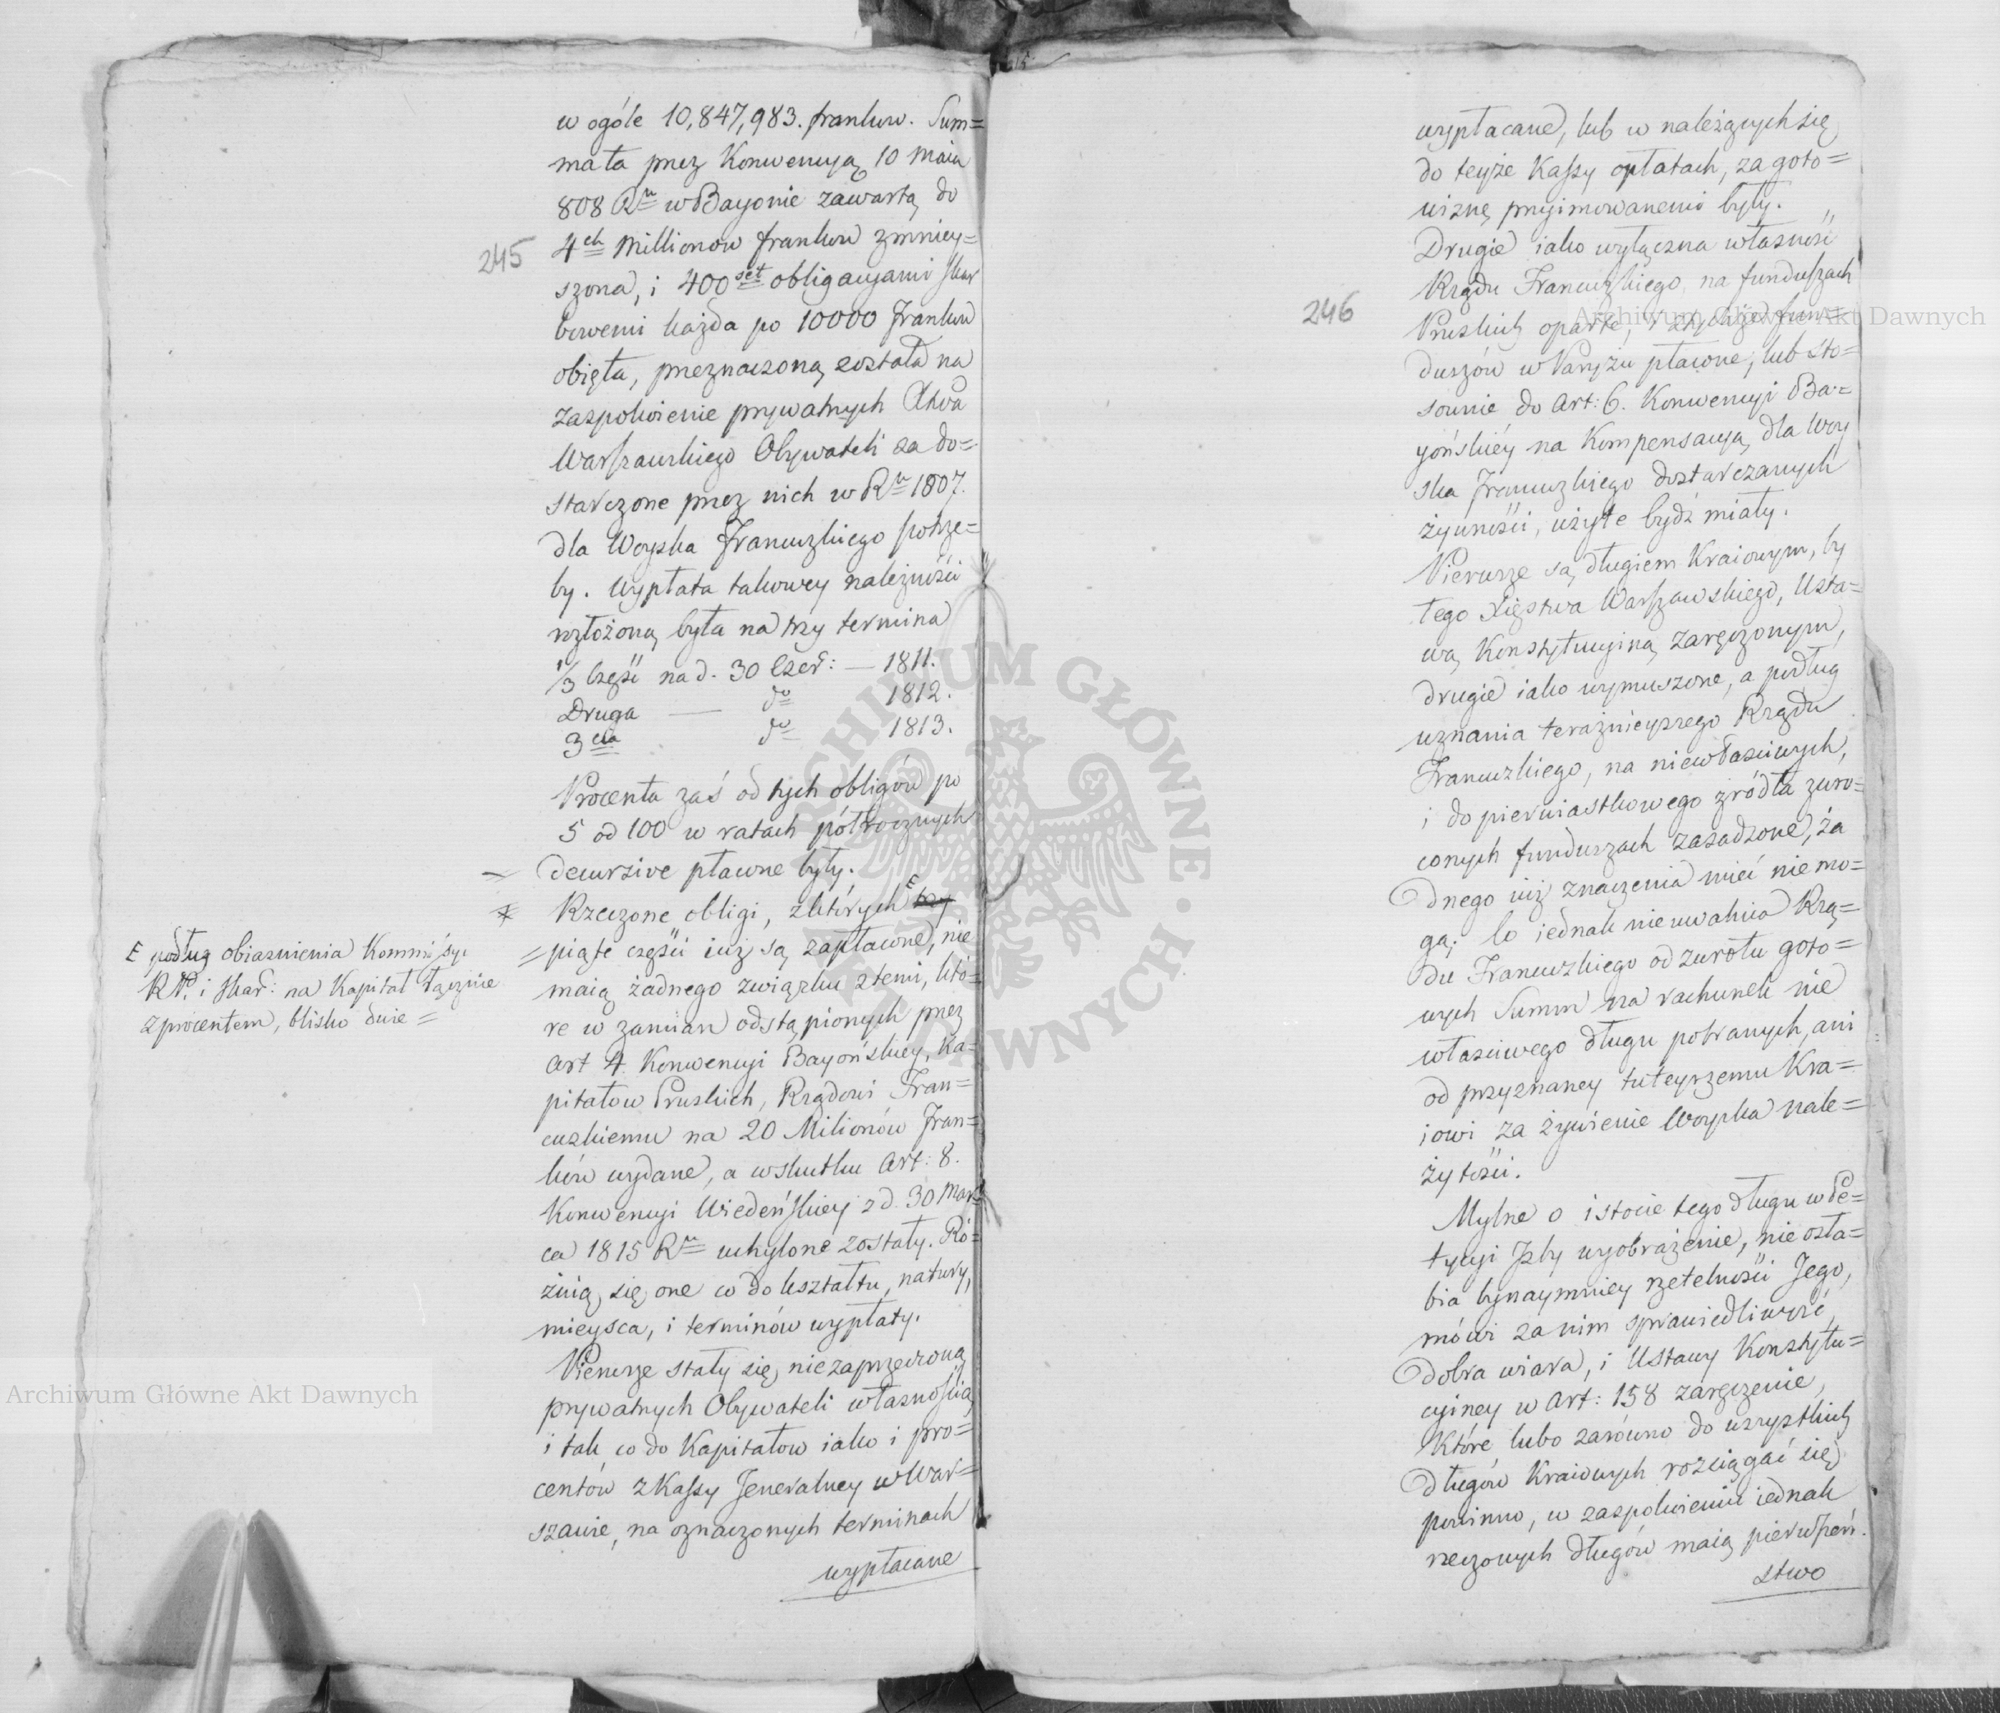 w ogóle 10,847,983. franków. Sum=
ma ta przez Konwencyą 10 Maia
808 Ru w Bayonie zawartą do
4ch Millionow franków zmniey=
szona, i 400set obligacyami skar
bowemi każda po 10000 franków
obięta, przeznaczoną została na
zaspokoienie prywatnych Xtwa
Warszawskiego Obywateli za do=
starczone przez nich w Ru 1807.
dla Woyska Francuzkiego potrze=
by. Wypłata takowey należności
rozłożoną była na trzy termina
1/3 Część na d. 30 Czer: — 1811.
Druga — do 1812.
3cia do 1813.
Procenta zaś od tych obligów po
5 od 100 w ratach półrocznych
decursive płacone były.
Rzeczone obligi, z których E trzy
=piąte części iuż są zapłacone, nie
maią żadnego związku z temi, któ=
re w zamian odstąpionych przez
Art 4. Konwencyi Bayońskiey, Ka=
pitałow Pruskich, Rządowi Fran=
cuzkiemu na 20 Milionów Fran=
ków wydane, a w skutku Art: 8.
Konwencyi Wiedeńskiey z d. 30 Mar
ca 1815 Ru uchylone zostały. Ró=
żnią się one co do kształtu, natury,
mieysca, i terminów wypłaty.
Pierwsze stały się niezaprzeczoną
prywatnych Obywateli własnością
i tak co do Kapitałow iako i pro=
centów z Kassy Jeneralney w War=
szawie, na oznaczonych terminach
wypłacane
245
E podług obiasnienia Kommissyi
R.P. i Skar: na Kapitał łącznie
z procentem, blisko dwie =
246
wypłacane, lub w należących się
do teyże Kassy opłatach, za goto=
wiznę przyimowanemi były.
Drugie iako wyłączna własność
Rządu Francuzkiego, na funduszach
Pruskich oparte, z tychże fun=
duszów w Paryżu płacone, lub sto=
sownie do Art: 6. Konwencyi Ba=
yońskiéy na Kompensacyą dla Woy
ska francuzkiego dostarczanych
żywności, użyte bydź miały.
Pierwsze są długiem Kraiowym, by
łego Xięstwa Warszawskiego, Usta=
wą Konstytucyiną zaręczonym,
drugie iako wymuszone, a podług
uznania teraźnieyszego Rządu
Francuzkiego, na niewłaściwych,
i do pierwiastkowego źródła zwró=
conych funduszach zasadzone, ża
dnego iuż znaczenia mieć nie mo=
gą; Co iednak nie uwalnia Rzą=
du Francuzkiego od zwrotu goto=
wych Summ na rachunek nie
właściwego długu pobranych, ani
od przyznaney tuteyszemu Kra=
iowi za żywienie Woyska nale=
żytości.
Mylne o istocie tego długu w Pe=
tycyi Izby wyobrażenie, nie osła=
bia bynaymniey rzetelności Jego,
mówi za nim sprawiedliwość,
dobra wiara, i Ustawy Konstytu=
cyiney w Art: 158 zaręczenie,
Które lubo zarówno do wszystkich
długów Kraiowych rozciągać się
powinno, w zaspokoieniu iednak
rzeczonych długów maią pierwszeń.
stwo
Archiwum Główne Akt Dawnych
Archiwum Główne Akt Dawnych
ARCHIWUM GŁÓWNE AKT DAWNYCH